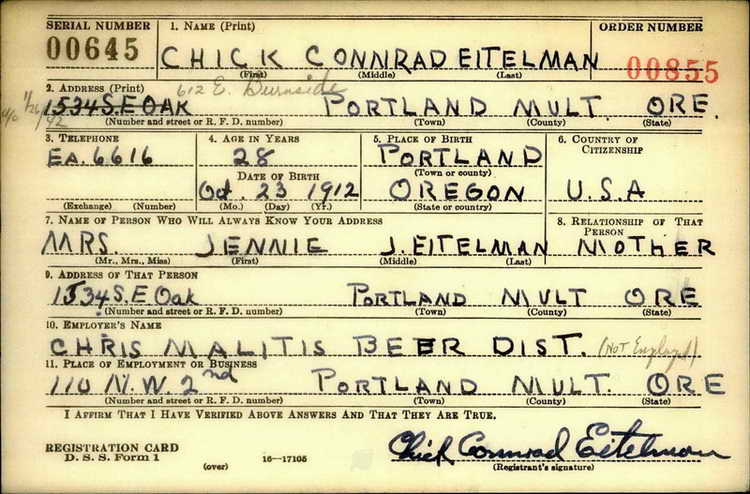 SERIAL NUMBER 1. NAME (Print) ORDER NUMBER
00645 CHICK CONNRAD EITELMAN 00855
(First) (Middle) (Last)
2. ADDRESS (Print) 612 E. Burnside
11/26/42 1534 S.E OAK PORTLAND MULT. ORE.
(Number and street or R. F. D. number) (Town) (County) (State)
3. TELEPHONE 4. AGE IN YEARS 5. PLACE OF BIRTH 6. COUNTRY OF CITIZENSHIP
EA. 6616 28 PORTLAND
DATE OF BIRTH (Town or county)
Oct. 23 1912 OREGON U.S.A
(Exchange) (Number) (Mo.) (Day) (Yr.) (State or country)
7. NAME OF PERSON WHO WILL ALWAYS KNOW YOUR ADDRESS 8. RELATIONSHIP OF THAT PERSON
MRS. JENNIE J. EITELMAN MOTHER
(Mr., Mrs., Miss) (First) (Middle) (Last)
9. ADDRESS OF THAT PERSON
1534 S.E Oak PORTLAND MULT ORE
(Number and street or R. F. D. number) (Town) (County) (State)
10. EMPLOYER'S NAME
CHRIS MALITIS BEER DIST. (NOT Employed)
11. PLACE OF EMPLOYMENT OR BUSINESS
110 N.W. 2nd PORTLAND MULT. ORE
(Number and street or R. F. D. number) (Town) (County) (State)
I AFFIRM THAT I HAVE VERIFIED ABOVE ANSWERS AND THAT THEY ARE TRUE.
REGISTRATION CARD Chick Connrad Eitelman
D. S. S. Form 1 (over) 16—17105 (Registrant's signature)